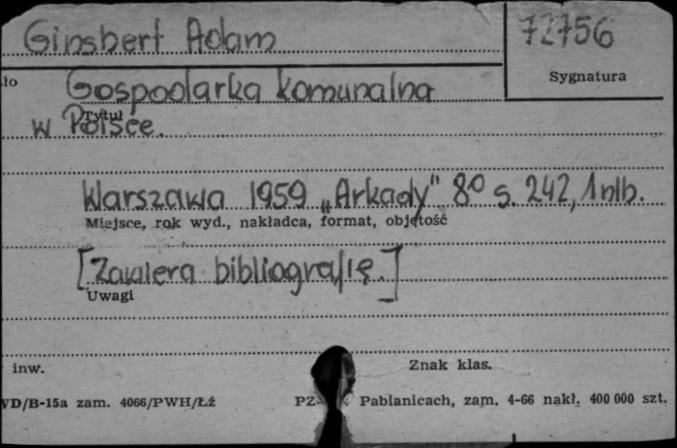 Ginsbert Adam
72756
Sygnatura
ło
Gospodarka komunalna
Tytuł
w Polsce.
Warszawa 1959 „Arkady" 8° s. 242, 1 nlb.
Miejsce, rok wyd., nakładca, format, objętość
[Zawiera bibliografię.]
Uwagi
inw.
Znak klas.
VD/B-15a zam. 4066/PWH/Łź
PZ Pabianicach, zam. 4-66 nakł. 400 000 szt.